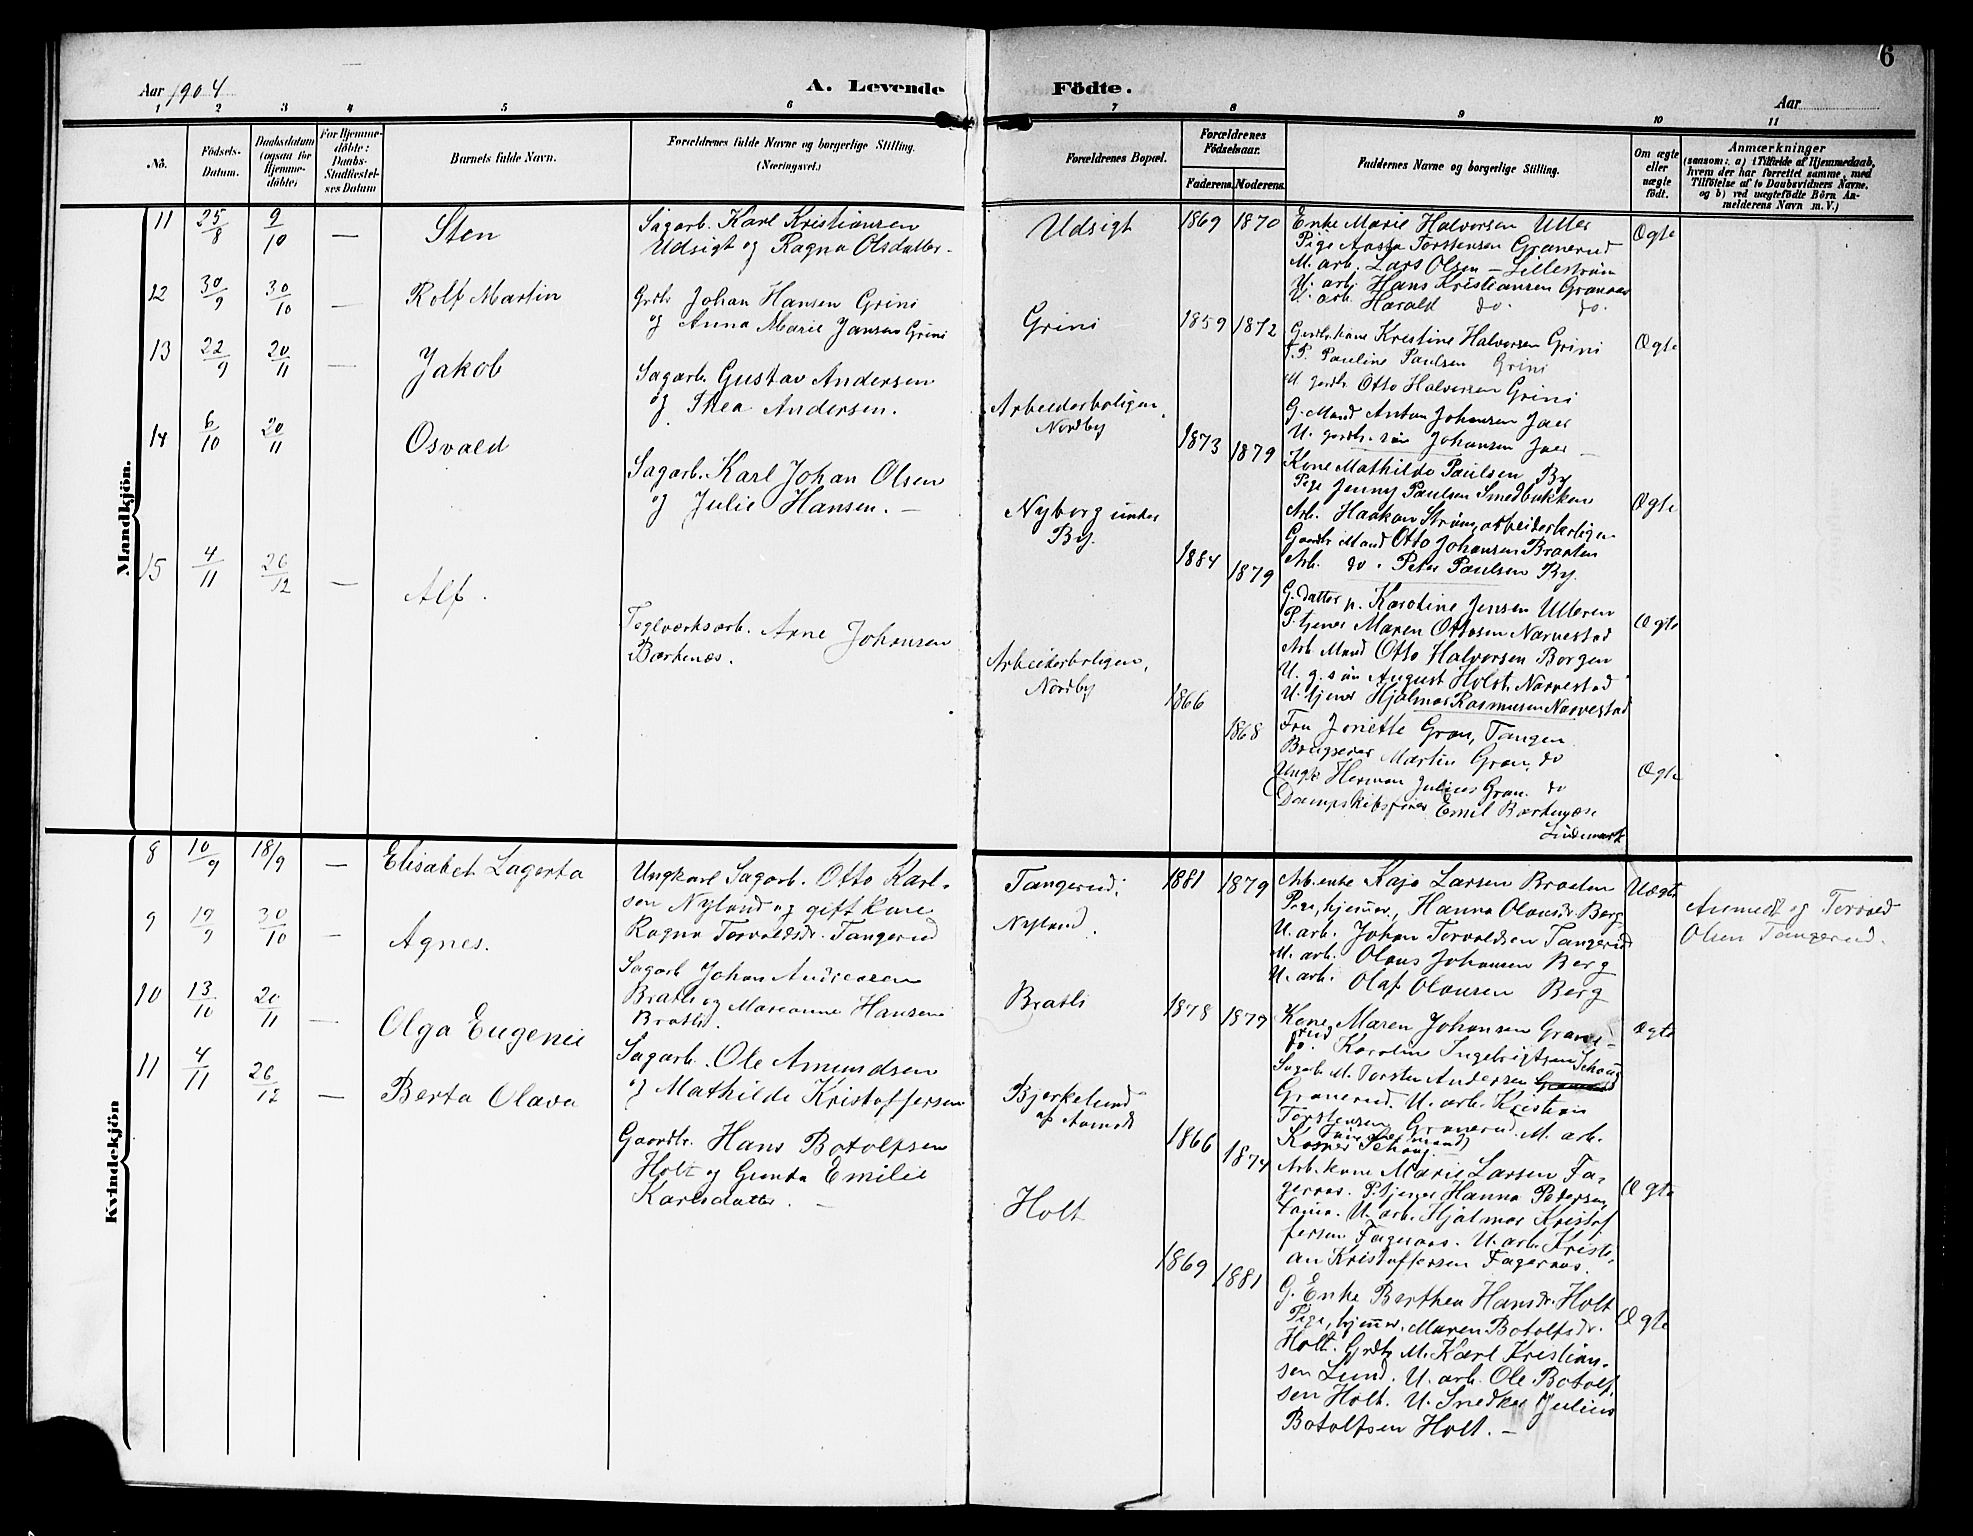 6
Aar 1904
A. Levende
Födte.
Aar
1 2 3 4 5 6 7 8 9 10 11
No.
Födsels-
Datum.
Daabsdatum
(ogsaa for
Hjemme-
döbte)
For Hjemme-
döbte:
Daabs-
Stadfæstel-
ses Datum
Barnets fulde Navn.
Forældrenes fulde Navne og borgerlige Stilling.
(Næringsvei.)
Forældrenes Bopæl.
Forældrenes
Födselsaar.
Faderens.
Moderens.
Faddernes Navne og borgerlige Stilling.
Om ægte
eller
uægte
födt.
Anmærkninger
(saasom: a) i Tilfælde af Hjemmedaab,
hvem der har forrettet samme, med
Tilföielse af to Daabsvidners Navne,
og b) ved uægtefödte Börn An-
melderens Navn m. V.)
Mandkjön.
11 25/8 9/10 — Sten
Sagarb. Karl Kristiansen
Udsigt og Ragna Olsdatter.
Udsigt 1869 1870
Enke Marie Halvorsen Ulter
Pige Aasta Torstensen Granerud
M. arb. Lars Olsen — Lillestrøm
U. arb. Hans Kristiansen Granaas
U. arb. Harald do. do.
Ægte
12 30/9 30/10 — Rolf Martin
Grdbr. Johan Hansen Grini
og Anna Marie Jansen Grini
Grini 1859 1872
Gardbr. kone Kristine Halvorsen Grini
T. P. Pauline Paulsen Grini
M. gardbr. Otto Halvorsen Grini
G. Mand Anton Johansen Jaer
U. gardbr. søn Johansen Jaer —
Ægte
13 22/9 20/11 — Jakob
Sagarb. Gustav Andersen
og Thea Andersen.
Arbeiderboligen,
Nordby
1873 1879
Kone Mathilde Paulsen By
Pige Jenny Paulsen Smedbakken
Arb. Haakon Strøm, arbeiderboligen
Gaardbr. Mand Otto Johansen Braaten
Arb. do. Peter Paulsen By.
Ægte
14 6/10 20/11 Osvald
Sagarb. Karl Johan Olsen
og Julie Hansen. —
Nyborg under
By.
1884 1879
G. datter p. Karoline Jensen Ulleren
P. tjener Maren Ottosen Narvestad
Arb. Mand Otto Halvorsen Borgen
U. g. søn August Holst, Narvestad
U. tjener Hjalmar Rasmussen Narvestad
Ægte
15 4/11 26/12 — Alf.
Teglværksarb. Arne Johansen
Bærkenæs.
Arbeiderboligen,
Nordby
1866 1868
Fru Jenette Gran, Tangen
Brugseier Martin Gran, do
Ungk. Herman Julius Gran. do
Dampskibsfører Emil Bærkenæs
Lindemark
Ægte
Kvindekjön
8 10/9 18/9 — Elisabet Lagerta
Ungkarl Sagarb. Otto Karl-
sen Nyland og gift Kone
Ragna Torvaldsdr. Tangerud
Tangerud;
Nyland.
1881 1879
Arb. enke Kaja Larsen Braaten
Pige, hjemme, Hanna Olausdr. Berg
U. arb. Johan Torvaldsen Tangerud
M. arb. Olaus Johansen Berg
U. arb. Olaf Olausen Berg
Uægte
Anmeldt og Torvald
Olsen Tangerud.
9 19/9 30/10 — Agnes.
Sagarb. Johan Andreasen
Bratli og Marianne Hansen
Bratli.
Bratli 1878 1877
Kone Maren Johansen Grane-
rud
do. Karoline Ingebrigtsen Schaug
Sagarb. M. Torsten Andersen
Granerud. U. arb. Kristian
Torstensen Granerud. M. arb.
Kasper Schaug
Ægte
10 13/10 20/11 — Olga Eugenie
Sagarb. Ole Amundsen
og Mathilde Kristoffersen
Bjerkelund
af Aamodt
1866 1874
Arb. kone Marie Larsen Fa-
geraas. P. tjener Hanna Pedersen
U. arb. Hjalmar Kristof-
fersen Fageraas. U. arb. Kristi-
an Kristoffersen Fageraas.
Ægte
11 4/11 26/12 — Berta Olava
Gaardbr. Hans Botolfsen
Holt og Gunda Emilie
Karlsdatter. —
Holt 1869 1881
G. Enke Berthea Hansdr. Holt
Pige, hjemme, Maren Botolfsdr.
Holt. Grdbr. M. Karl Kristian-
sen Lund. U. arb. Ole Botolf-
sen Holt. U. Snedker Julius
Botolfsen Holt. —
Ægte